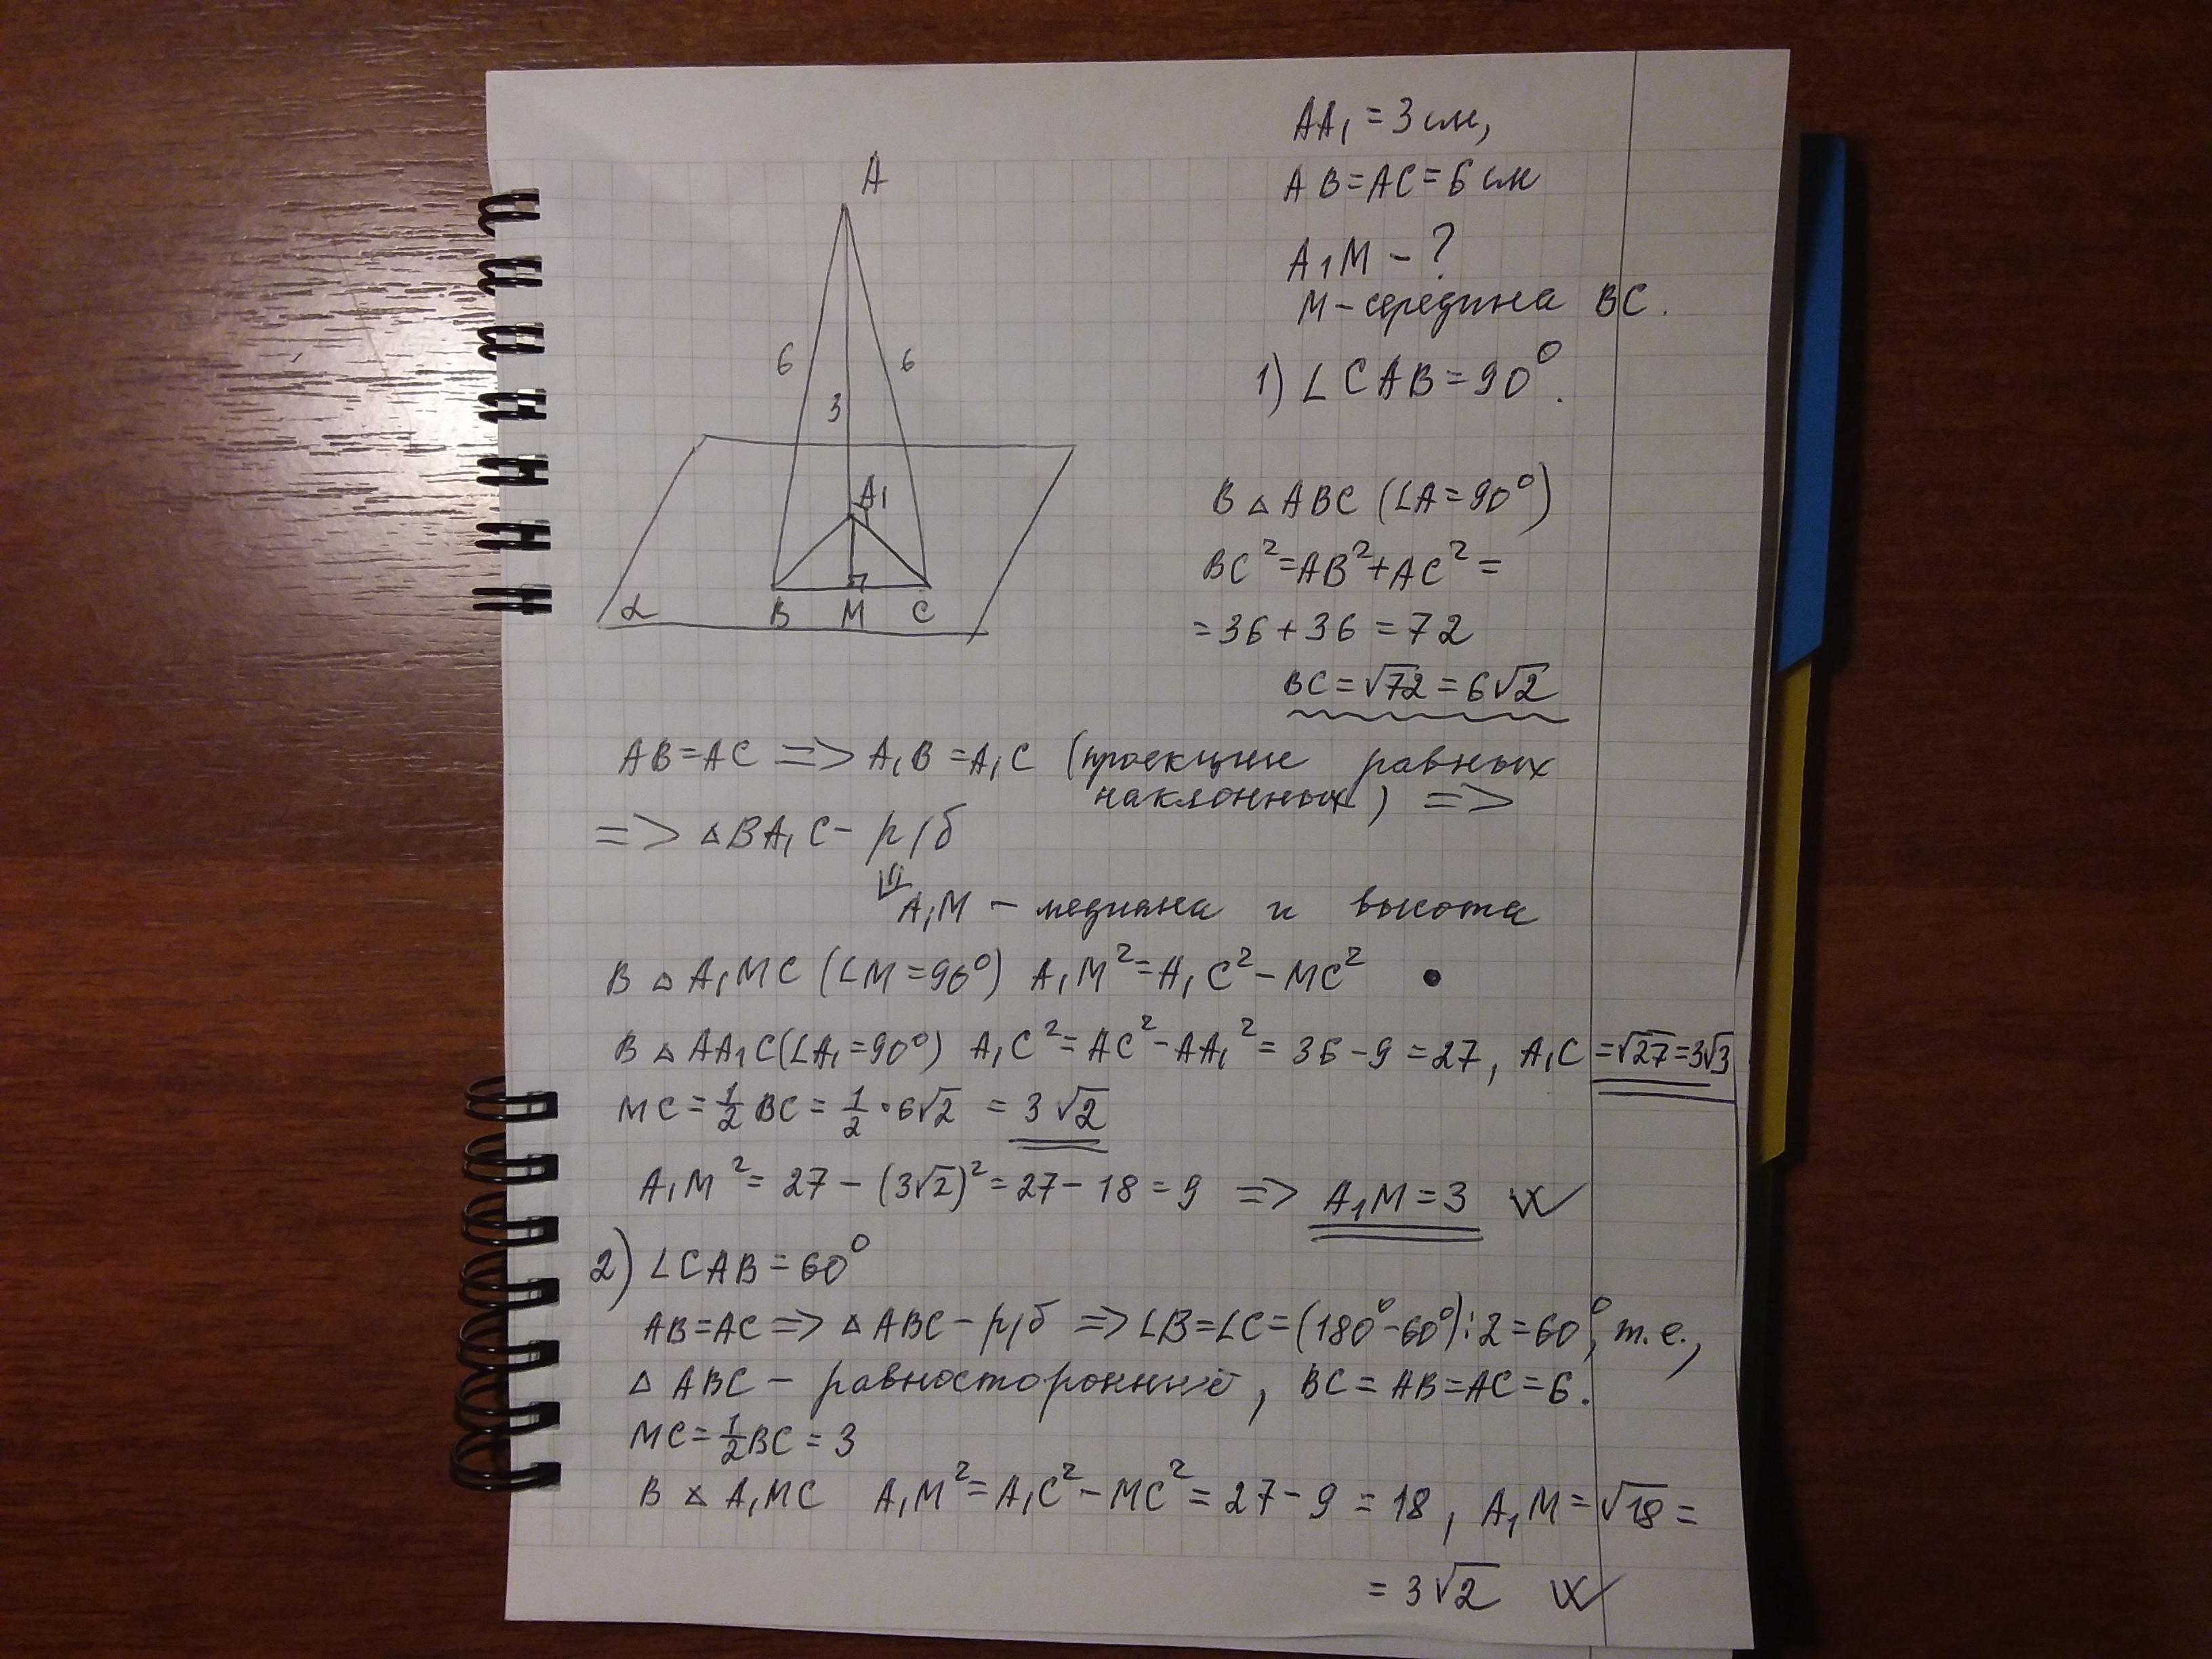 AA₁ = 3 см,
AB = AC = 6 см
A₁M - ?
M - середина BC.
1) ∠CAB = 90°.
A
6
6
3
A₁
B
M
C
α
В △ ABC (∠A = 90°)
BC² = AB² + AC² =
= 36 + 36 = 72
BC = √72 = 6√2
AB = AC => A₁B = A₁C (проекции равных
наклонных) =>
=> △BA₁C - р/б
⇓
A₁M - медиана и высота
В △ A₁MC (∠M = 90°) A₁M² = A₁C² - MC²
В △ AA₁C (∠A₁ = 90°) A₁C² = AC² - AA₁² = 36 - 9 = 27, A₁C = √27 = 3√3
MC = ½ BC = ½ · 6√2 = 3√2
A₁M² = 27 - (3√2)² = 27 - 18 = 9 => A₁M = 3
2) ∠CAB = 60°
AB = AC => △ ABC - р/б => ∠B = ∠C = (180° - 60°) : 2 = 60°, т.е.,
△ ABC - равносторонний, BC = AB = AC = 6.
MC = ½ BC = 3
В △ A₁MC A₁M² = A₁C² - MC² = 27 - 9 = 18, A₁M = √18 =
= 3√2